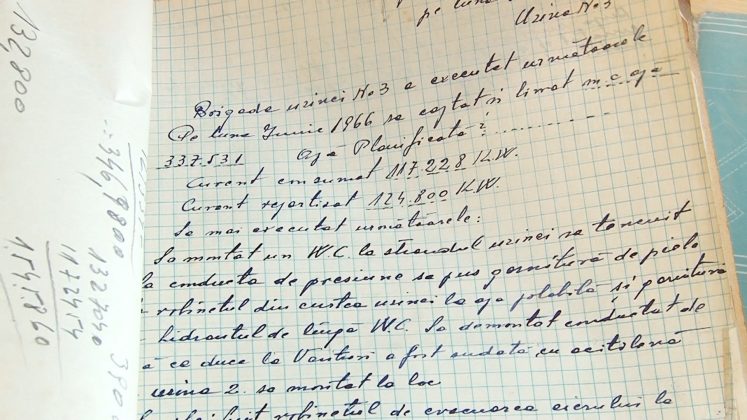 pe luna
Uzina No 3
Brigada uzinei No 3 a executat următoarele
Pe luna Iunie 1966 sa captat și livrat m.c. apa
337.531 Apă Planificată?
Curent consumat 117.228 K.W.
Curent repartizat 124.800 K.W.
Sa mai executat următoarele:
Sa montat un W.C. la ștrandul uzinei sa tencuit
la conducta de presiune sa pus garnitură de piele
robinetul din curtea uzinei la apa potabilă și garnitură
hidrantul de lîngă W.C. Sa demontat conducta de
ce duce la Vanturi a fost sudată cu acitelenă
uzina 2. sa montat la loc
robinetul de evacuarea aierului la
132,800
346,9800
132,7040
117.24.14
154.7.860